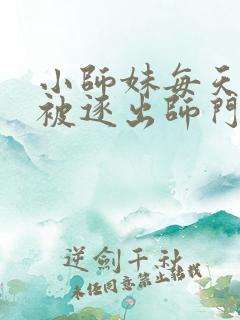 小師妹每天
被逐出師門
逆劍千秋
未經同意禁止轉載